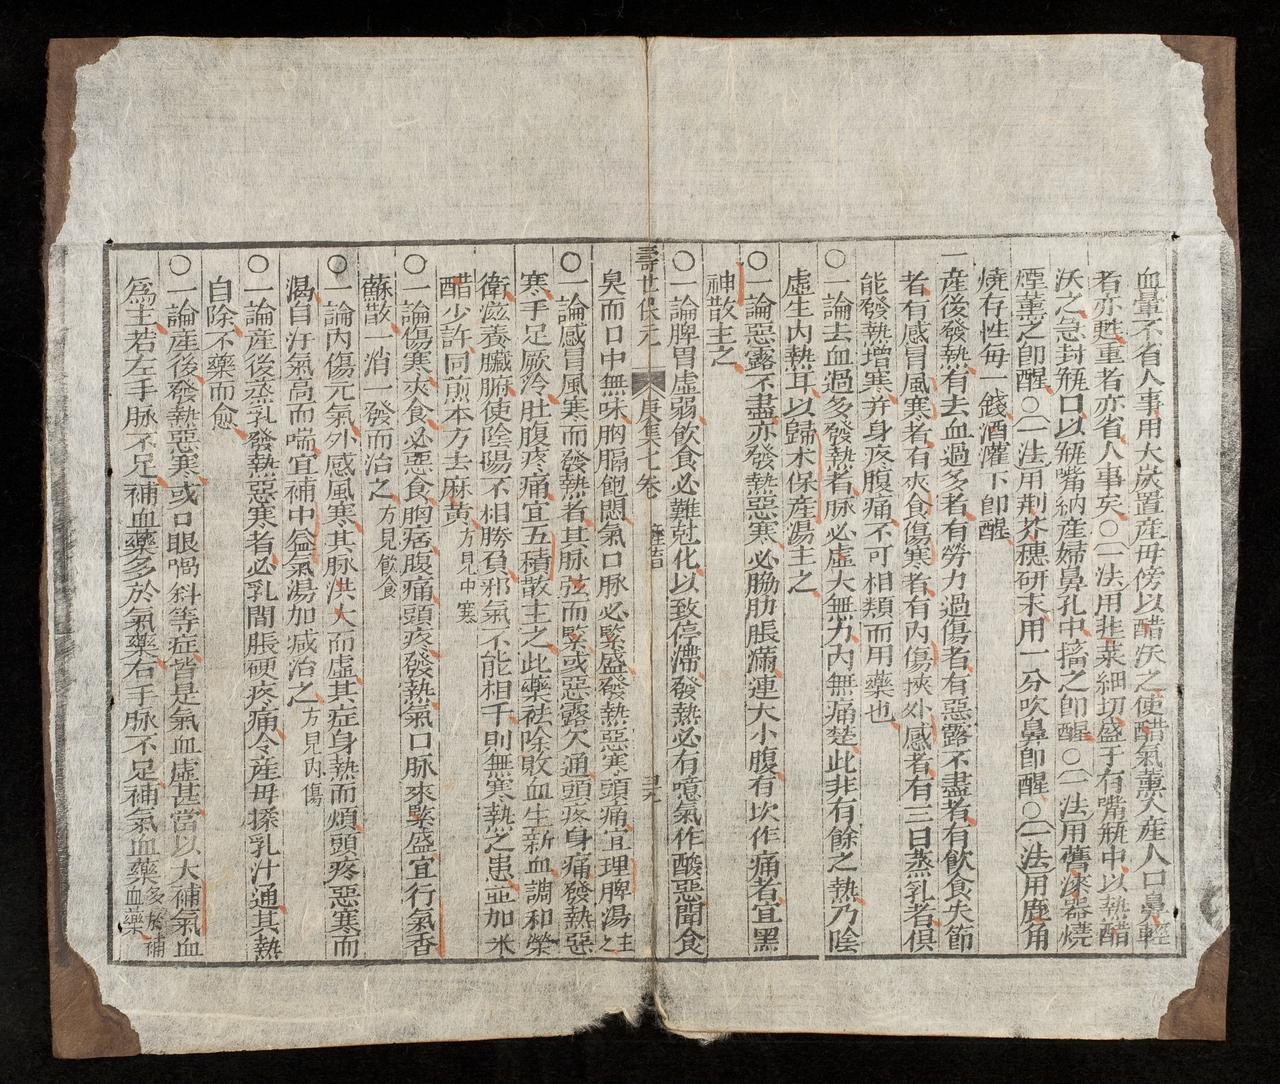 血暈不省人事用大炭置産毋傍以醋沃之使醋氣薰入産人口鼻輕
者亦甦重者亦省人事矣○(一)法用韭菜細切盛于有嘴瓶中以熱醋
沃之急封瓶口以瓶嘴納産婦鼻孔中擣之卽醒○(一)法用舊漆器燒
煙薰之卽醒○(一)法用荆芥穗研末用一分吹鼻卽醒○(一)法用鹿角
燒存性每一錢酒灌下卽醒
一産後發熱有去血過多者有勞力過傷者有惡露不盡者有飮食失節
者有感冒風寒者有夾食傷寒者有内傷挾外感者有三日蒸乳者俱
能發熱增寒并身疼腹痛不可相類而用藥也
○一論去血過多發熱者脉必虛大無力内無痛楚此非有餘之熱乃陰
虛生内熱耳以歸术保産湯主之
○一論惡露不盡亦發熱惡寒必脇肋脹滿連大小腹有坎作痛者宜黑
神散主之
○一論脾胃虛弱飮食必難尅化以致停滯發熱必有噫氣作酸惡聞食
壽世保元 庚集七卷
臭而口中無味胸膈飽悶氣口脉必緊盛發熱惡寒頭痛宜理脾湯主之
○一論感冒風寒而發熱者其脉弦而緊或惡露欠通頭疼身痛發熱惡
寒手足厥冷肚腹疼痛宜五積散主之此藥祛除敗血生新血調和榮
衛滋養臟腑使陰陽不相勝負邪氣不能相千則無寒執之患並加米
醋少許同煎本方去麻黃方見中寒
○一論傷寒夾食必惡食胸痞腹痛頭疼發熱氣口脉來緊盛宜行氣香
蘇散一消一發而治之方見飮食
○一論内傷元氣外感風寒其脉洪大而虛其症身熱而煩頭疼惡寒而
渴自汗氣高而喘宜補中益氣湯加咸治之方見内傷
○一論産後蒸乳發熱惡寒者必乳間脹硬疼痛令産毋揉乳汁通其熱
自除不藥而愈
○一論産後發熱惡寒或口眼喎斜等症皆是氣血虛甚當以大補氣血
爲主若左手脉不足補血藥多於氣藥右手脉不足補氣血藥多於補血藥